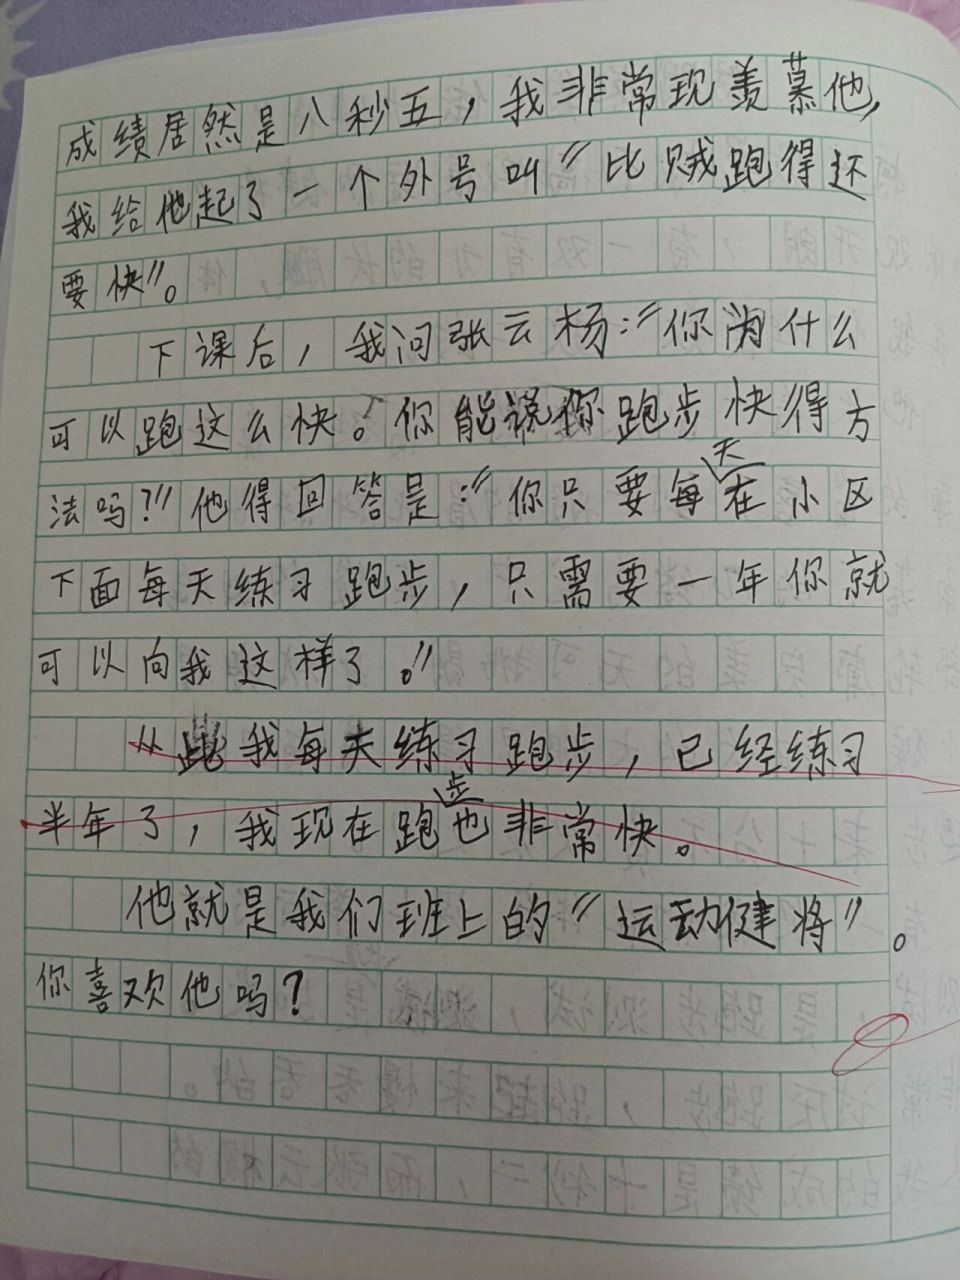 成绩居然是八秒五，我非常现羡慕他，
我给他起了一个外号叫“比贼跑得还
要快”。
下课后，我问张云杨：“你为什么
可以跑这么快。你能说你跑步快得方
法吗？”他得回答是：“你只要每天在小区
下面每天练习跑步，只需要一年你就
可以向我这样了。”
从此我每天练习跑步，已经练习
半年了，我现在跑步也非常快。
他就是我们班上的“运动健将”。
你喜欢他吗？